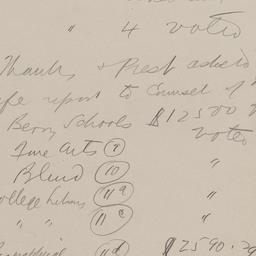 " 4 voted
Thanks & Prest asked to
report to Counsel of
Berry Schools $12500
voted
Fine Arts (9)
Blind (10) "
College Library (11a) "
" " (11c) "
(11d) $2590.29